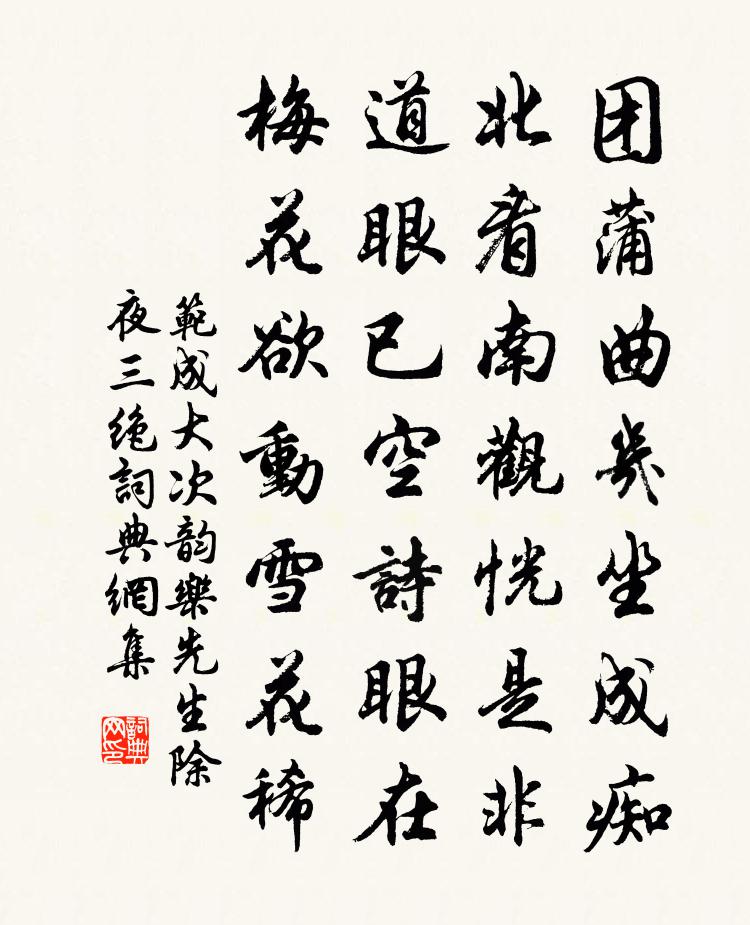 团蒲曲几坐成痴
北看南觀恍是非
道眼已空詩眼在
梅花欲動雪花稀
範成大次韵樂先生除
夜三绝詞典網集
詞典
网印